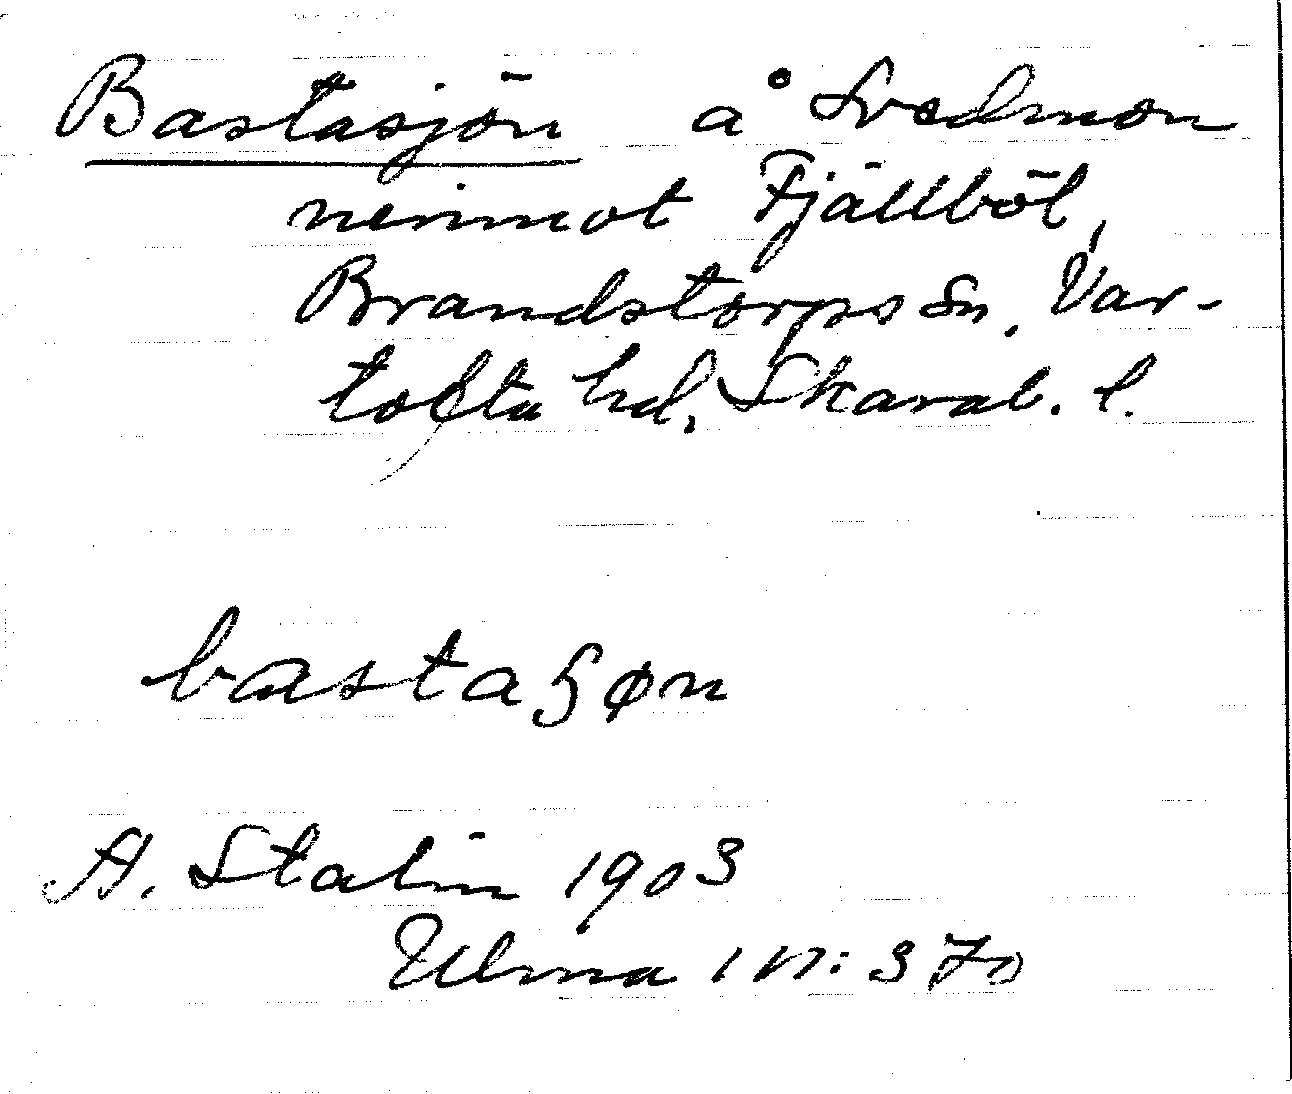 Bastasjön å Svedmon
neimot Fjällböl,
Brandstorps sn, Var-
tofta hd, Skarab. l.
bastaʃøn
A. Stalin 1903
Ulma 111: 370